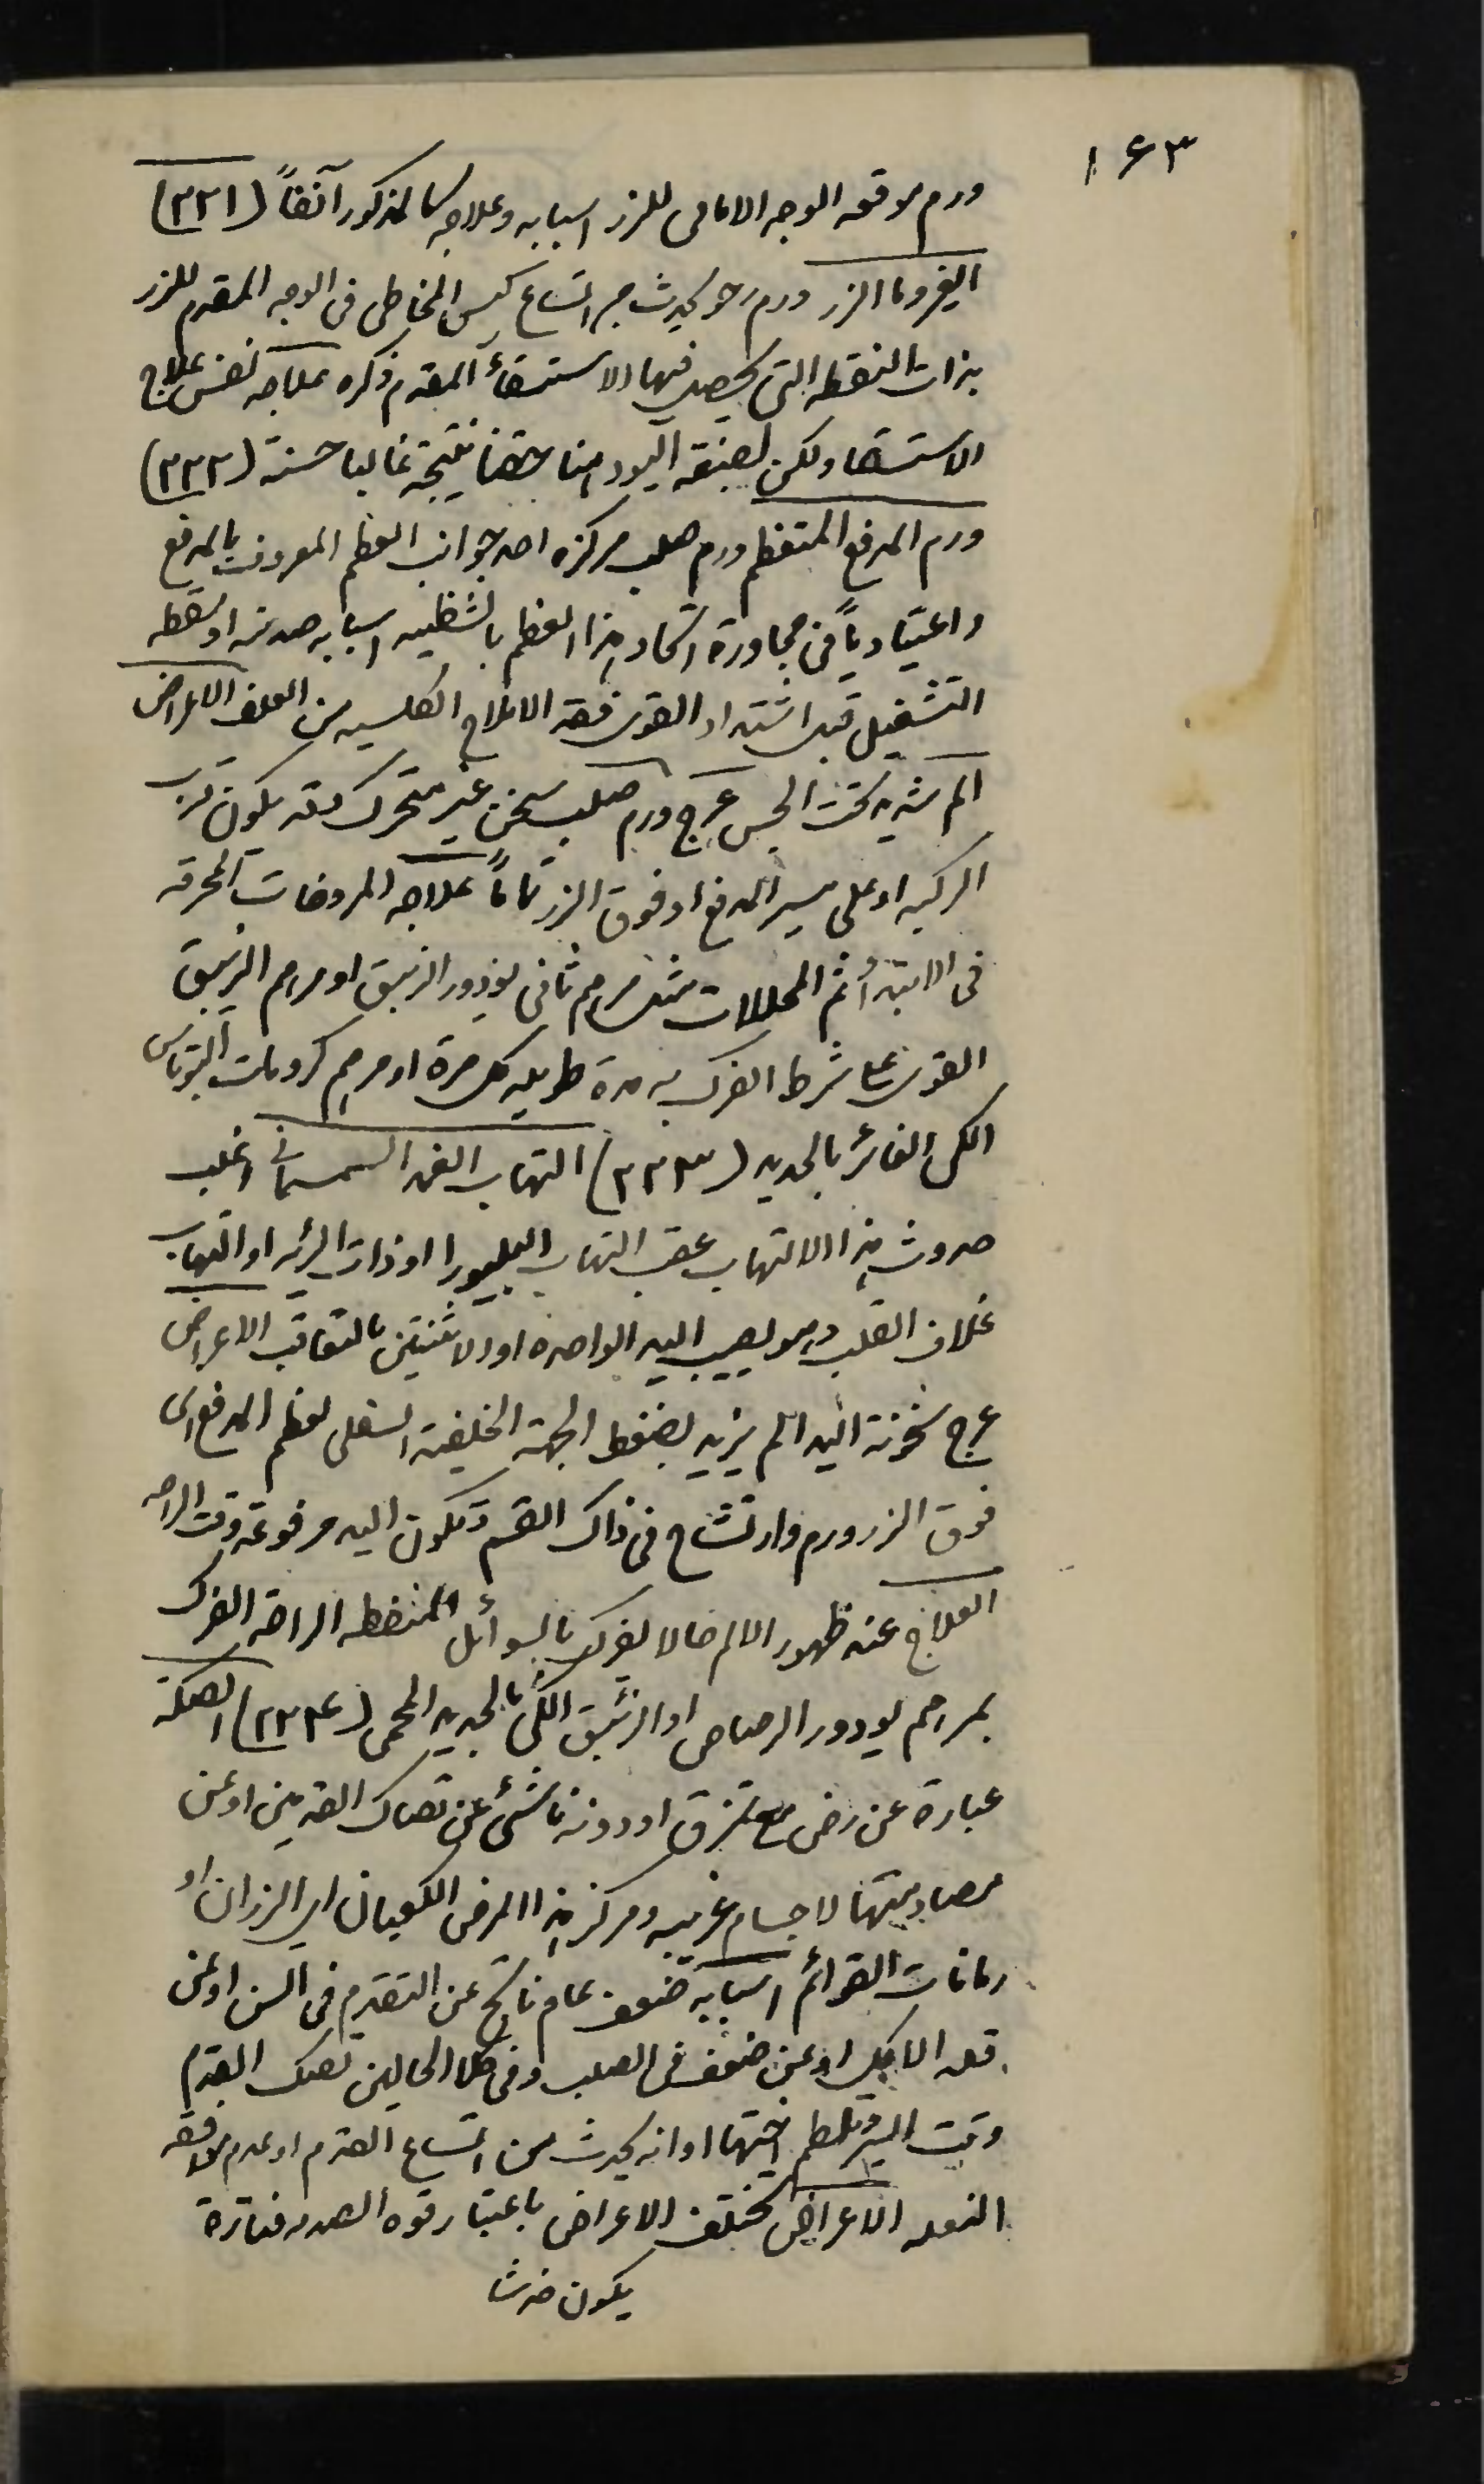 ١٤٣
ورم موقعه الوجه الامامى للزر اسبابه وعلاجه كالمذكور آنفاً (٣٣١)
اليغروما الزر ورم رخو يحدث من اتساع كيس المخاطى فى الوجه المقدم للزر
بذات النقطه التى يحصل فيها الاستسقاء المقدم ذكره علاجه نفس علاج
الاستسقا ولكن لصبغة اليود هنا حقنا نتيجة غالبا حسنة (٣٣٢)
ورم المدفع المتعظم ورم صلب مركزه احد جوانب العظم المعروف بالمدفع
واعتيادياً فى مجاورة اتحاد هذا العظم بالشظيه اسبابه صدمه او سقطه
التشغيل قبل اشتداد القوى فقد الاملاح الكلسيه من العلف الاعراض
الم شديد تحت الجس عرج ورم صلب سخن غير متحرك وقد يكون قرب
الركبه او على مسير المدفع او فوق الزر تماماً علاجه المروخات المحرقه
فى الابتداء ثم المحللات مثل مرهم ثانى يودور الزيبق او مرهم الزيبق
القوى على شرط الفرك به مدة طويله كل مرة او مرهم كرومات البوتاس
الكى الغائر بالحديد (٣٣٣) التهاب الغمد السمسمانى اغلب
حدوث هذا الالتهاب عقب التهاب البليورا او ذات الريه او التهاب
غلاف القلب وهو يصيب اليد الواحده او الاثنتين بالتعاقب الاعراض
عرج سخونة اليد الم يزيد بضغط الجهة الخلفية السفلى لعظم المدفع اى
فوق الزر ورم وارتشاح فى ذاك القسم وتكون اليد مرفوعة وقت الراحه
العلاج عند ظهور الالم حالا يفرك بالسوائل المنفطه الراحة الفرك
بمرهم يودور الرصاص او الزئبق الكى بالحديد المحمى (٣٣٤) الصكة
عبارة عن رض مع تمزق او دونه ناشئ عن تصاك القدمين او عن
مصادمتها لاجسام غريبه ومركز هذا المرض الكعبان اى الزران او
رمانات القوائم اسبابه ضعف عام ناتج عن التقدم فى السن او عن
قلة الاكل او عن ضعف فى الصلب وفى كلا الحالين تصك القدم
وقت السير وتلطم اختها او انه يحدث من اتساع القدم او عدم موافقه
النعل الاعراض تختلف الاعراض باعتبار قوه الصدمه فتارة
يكون خدشا